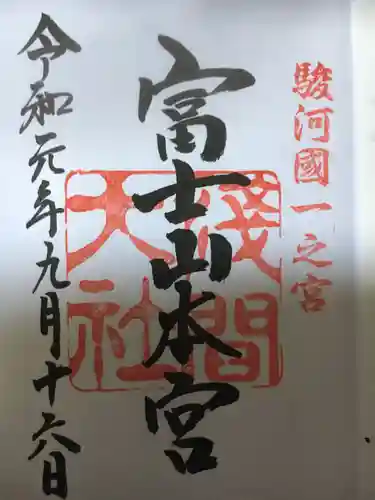 駿河國一之宮
富士山本宮
浅間大社
令和元年九月十六日